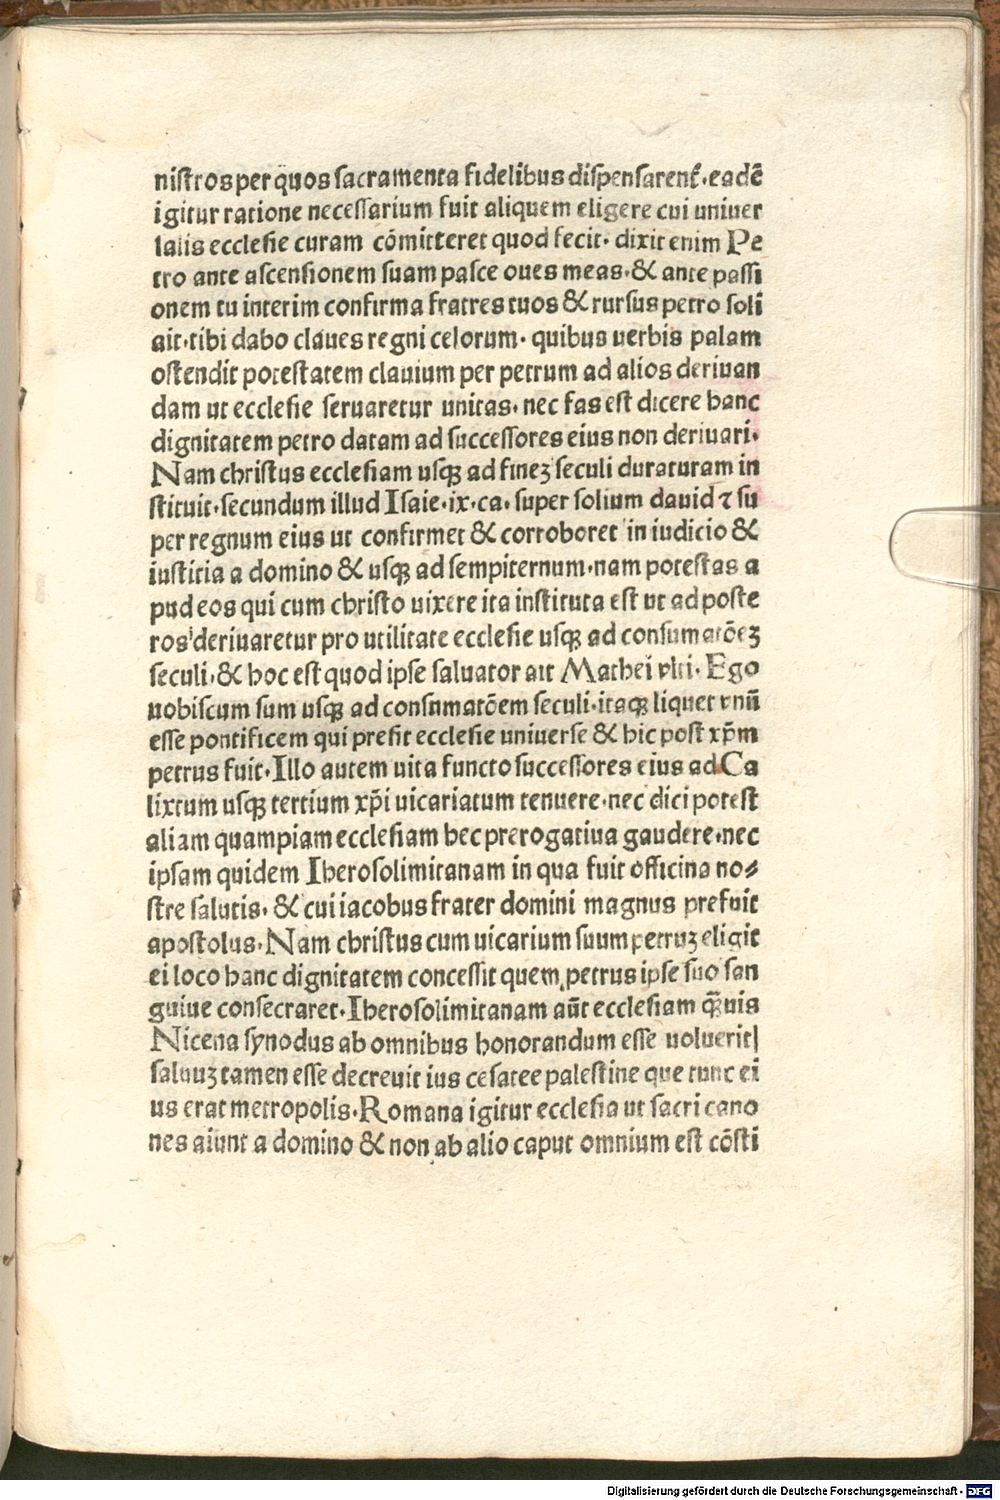 nistros per quos sacramenta fidelibus dispensarent᷑.eadē
igitur ratione necessarium fuit aliquem eligere cui univer
salis ecclesie curam cōmitteret quod fecit. dixit enim Pe
tro ante ascensionem suam pasce oves meas.& ante passi
onem tu interim confirma fratres tuos & rursus petro soli
ait.tibi dabo claves regni celorum. quibus verbis palam
ostendit potestatem clavium per petrum ad alios derivan
dam ut ecclesie servaretur unitas. nec fas est dicere hanc
dignitatem petro datam ad successores eius non derivari.
Nam christus ecclesiam usqꝫ ad fineꝫ seculi duraturam in
stituit.secundum illud Isaie.ix.ca. super solium david ⁊ su
per regnum eius ut confirmet & corroboret in iudicio &
iustitia a domino & usqꝫ ad sempiternum.nam potestas a
pud eos qui cum christo vixere ita instituta est ut ad poste
ros derivaretur pro utilitate ecclesie usqꝫ ad consumatōeꝫ
seculi.& hoc est quod ipse salvator ait Mathei vlti. Ego
vobiscum sum usqꝫ ad consumatōem seculi.itaqꝫ liquet vnū
esse pontificem qui presit ecclesie universe & hic post xp̄m
petrus fuit.Illo autem vita functo successores eius ad Ca
lixtum usqꝫ tertium xp̄i vicariatum tenuere.nec dici potest
aliam quampiam ecclesiam hec prerogativa gaudere.nec
ipsam quidem Iherosolimitanam in qua fuit officina no⸗
stre salutis. & cui iacobus frater domini magnus prefuit
apostolus.Nam christus cum vicarium suum petruꝫ eligit
ei loco hanc dignitatem concessit quem petrus ipse suo san
guiue consecraret.Iherosolimitanam aūt ecclesiam qͣ̄vis
Nicena synodus ab omnibus honorandum esse voluerit|
salvuꝫ tamen esse decrevit ius cesatee palestine que tunc ei
us erat metropolis.Romana igitur ecclesia ut sacri cano
nes aiunt a domino & non ab alio caput omnium est cōsti
Digitalisierung gefördert durch die Deutsche Forschungsgemeinschaft - DFG